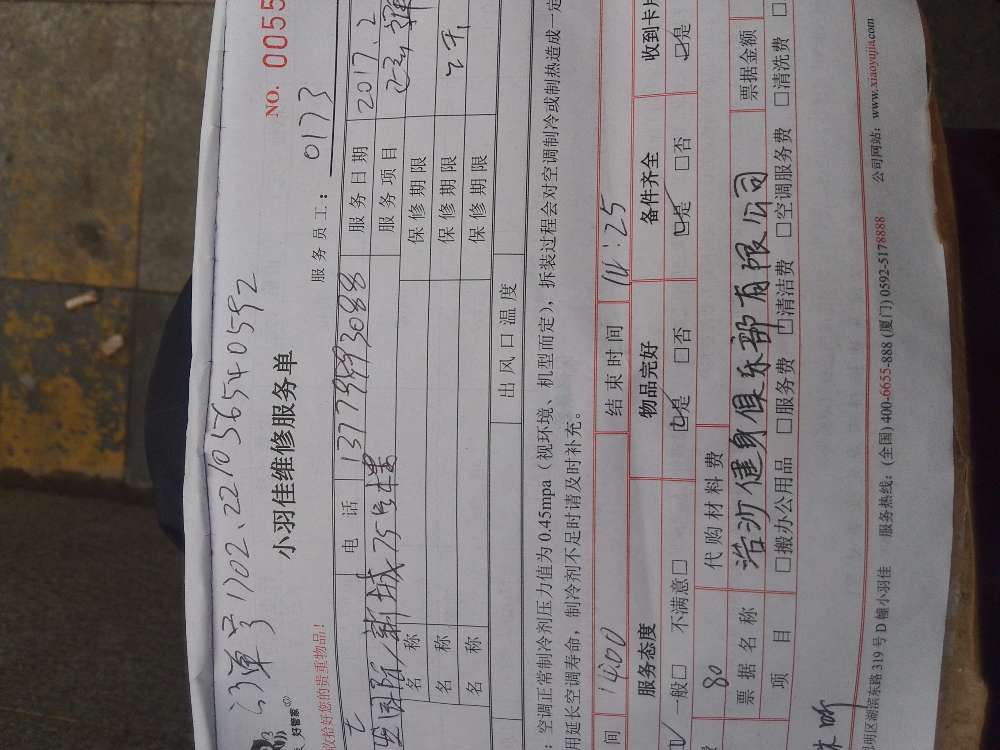 订单号1702.221056540592
好管家
小羽佳维修服务单
NO. 0055
收拾好您的贵重物品!
服务员工: 0173
电 话 13779993088 服务日期 2017.2
新城75号楼 服务项目
名 称 保修期限
名 称 保修期限
名 称 保修期限
出风口温度
:空调正常制冷剂压力值为 0.45mpa(视环境、机型而定),拆装过程会对空调制冷或制热造成一定
用延长空调寿命,制冷剂不足时请及时补充。
间 14:00 结束时间 14:25
服务态度 物品完好 备件齐全 收到卡片
一般□ 不满意□ ☑是 □否 ☑是 □否 ☑是
费 80 代购材料费
票据名称 浩沙健身俱乐部有限公司 票据金额
项 目 □搬办公用品 □服务费 □清洁费 □空调服务费 □清洗费
明区湖滨东路 319 号 D 幢小羽佳 服务热线:(全国) 400-6655-888 (厦门) 0592-5178888 公司网站:www.xiaoyujia.com